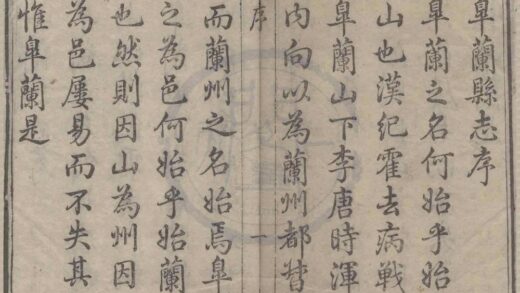 皐蘭縣志序
皐蘭之名何始乎始
山也漢紀霍去病戰
皐蘭山下李唐時渾
內向以為蘭州都督
序 一
而蘭州之名始焉皐
之為邑何始乎始蘭
也然則因山為州因
為邑屢易而不失其
惟皐蘭是